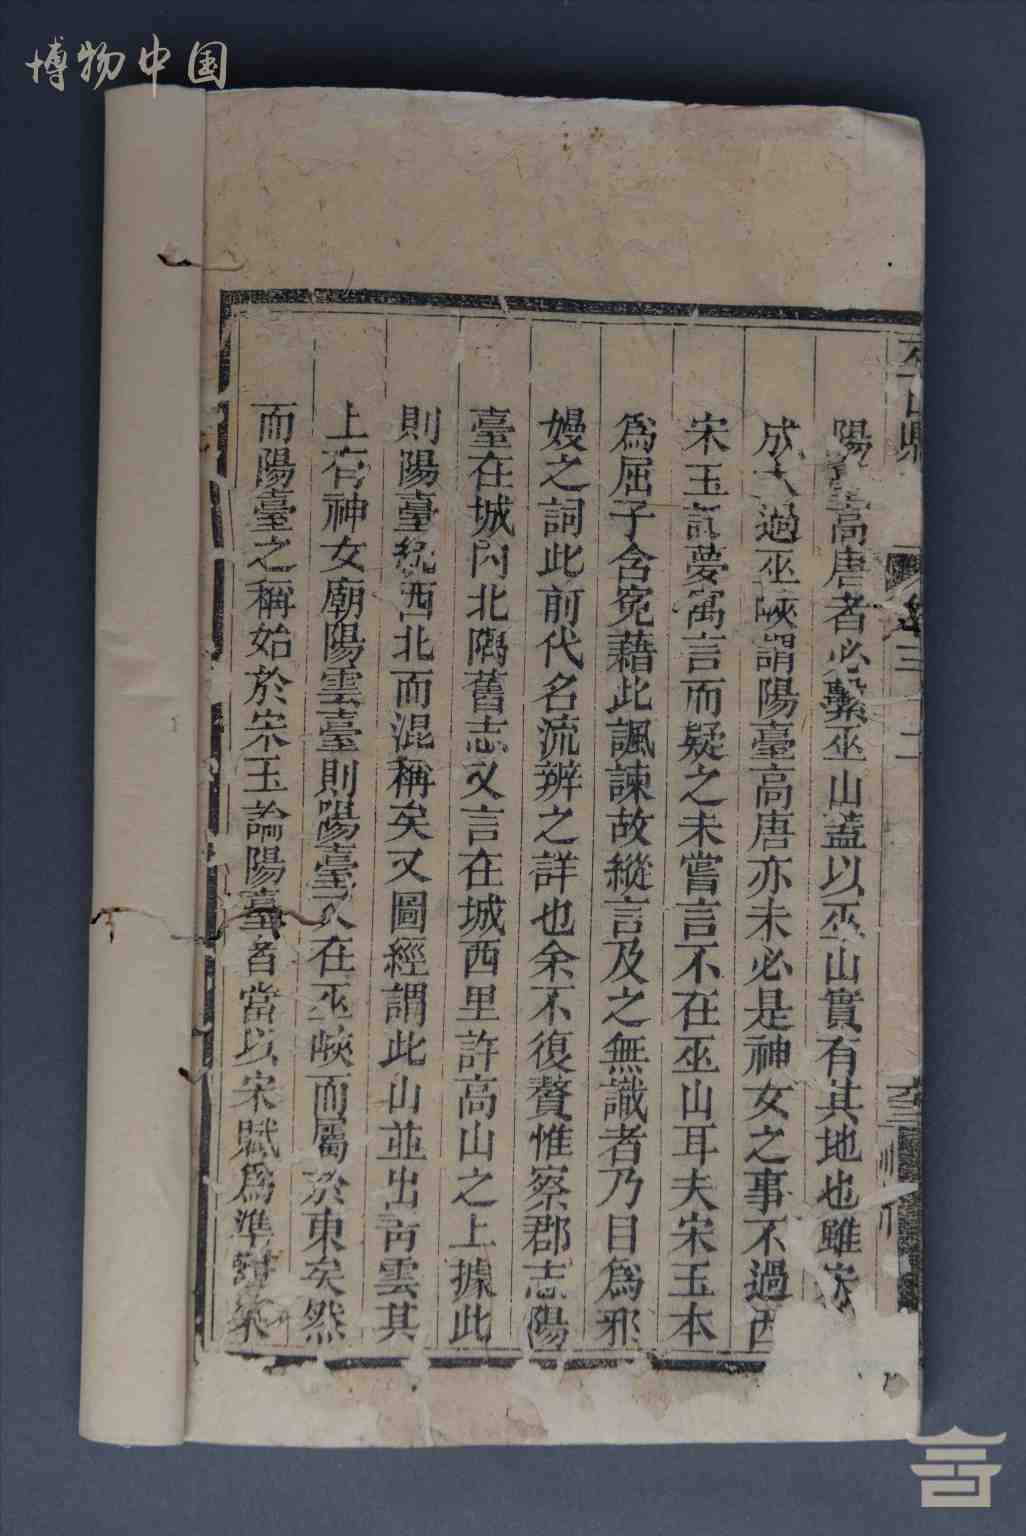 博物中国
巫山縣
卷三十二
陽臺高唐者必繫巫山蓋以巫山實有其地也雖宋
成大過巫峽謂陽臺高唐亦未必是神女之事不過因
宋玉託夢寓言而疑之未嘗言不在巫山耳夫宋玉本
爲屈子含寃藉此諷諫故縱言及之無識者乃目爲邪
嫚之詞此前代名流辨之詳也余不復贅惟察郡志陽
臺在城內北隅舊志又言在城西里許高山之上據此
則陽臺統西北而混稱矣又圖經謂此山並出靑雲其
上有神女廟陽雲臺則陽臺又在巫峽而屬於東矣然
而陽臺之稱始於宋玉論陽臺者當以宋賦爲準